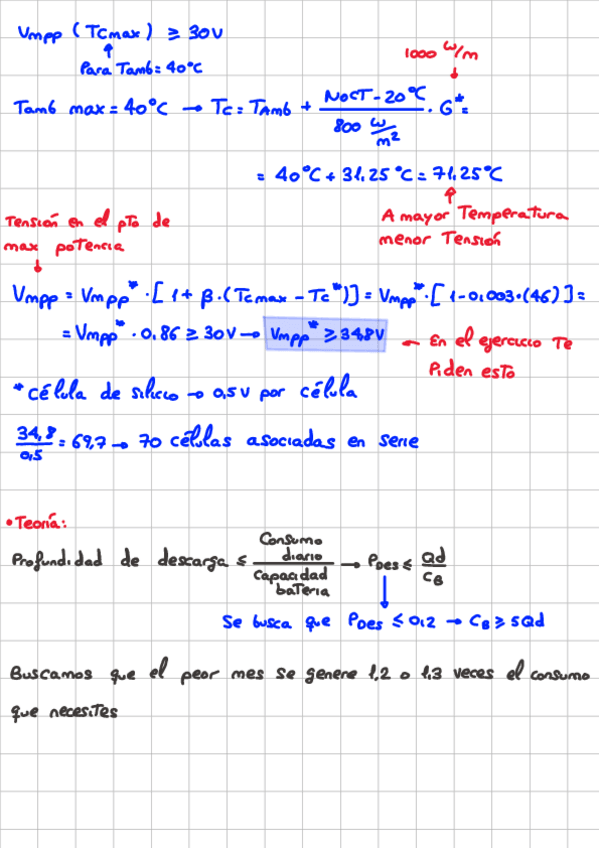 Vmpp (Tcmax) ≥ 30V
Para Tamb = 40°C
1000 W/m
Tamb max = 40°C → Tc = TAmb + (NOCT - 20°C / 800 W/m²) · G* =
= 40°C + 31,25°C = 71,25°C
A mayor Temperatura
menor Tensión
Tensión en el pto de
max potencia
Vmpp = Vmpp* · [1 + β · (Tcmax - Tc*)] = Vmpp* · [1 - 0,003 · (46)] =
= Vmpp* · 0,86 ≥ 30V → Vmpp* ≥ 34,8V
← En el ejercicio Te
Piden esto
* célula de silicio → 0,5V por célula
34,8 / 0,5 = 69,7 → 70 células asociadas en serie
• Teoría:
Profundidad de descarga ≤ Consumo diario / Capacidad batería → PDES ≤ Qd / CB
Se busca que PDES ≤ 0,2 → CB ≥ 5Qd
Buscamos que el peor mes se genere 1,2 o 1,3 veces el consumo
que necesites